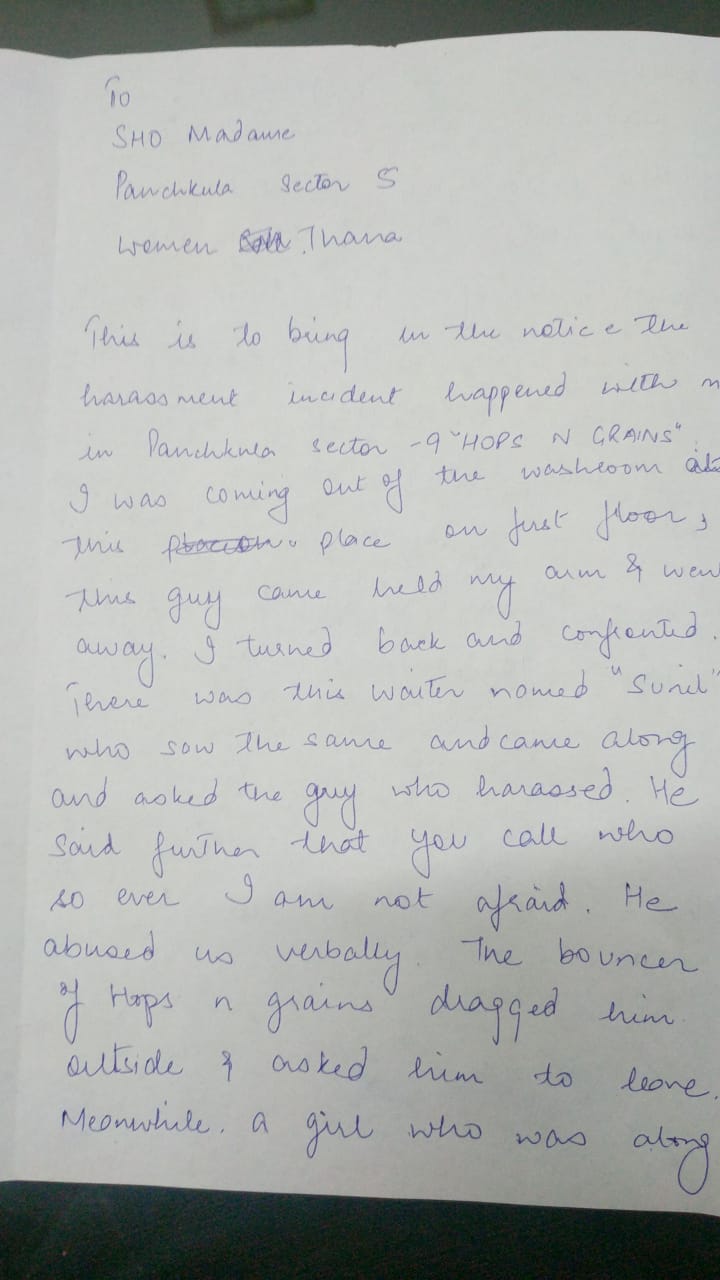 To
SHO Madame
Panchkula Sector 5
Women Thana
This is to bring in the notice the
harassment incident happened with
in Panchkula sector -9 "HOPS N GRAINS"
I was coming out of the washroom
this place on first floor,
this guy came held my arm &
away. I turned back and confronted.
There was this waiter named "Sunil"
who saw the same and came along
and asked the guy who harassed. He
said further that you call who
so ever I am not afraid. He
abused us verbally. The bouncer
of Hops n grains dragged him
outside & asked him to leave.
Meanwhile. a girl who was along